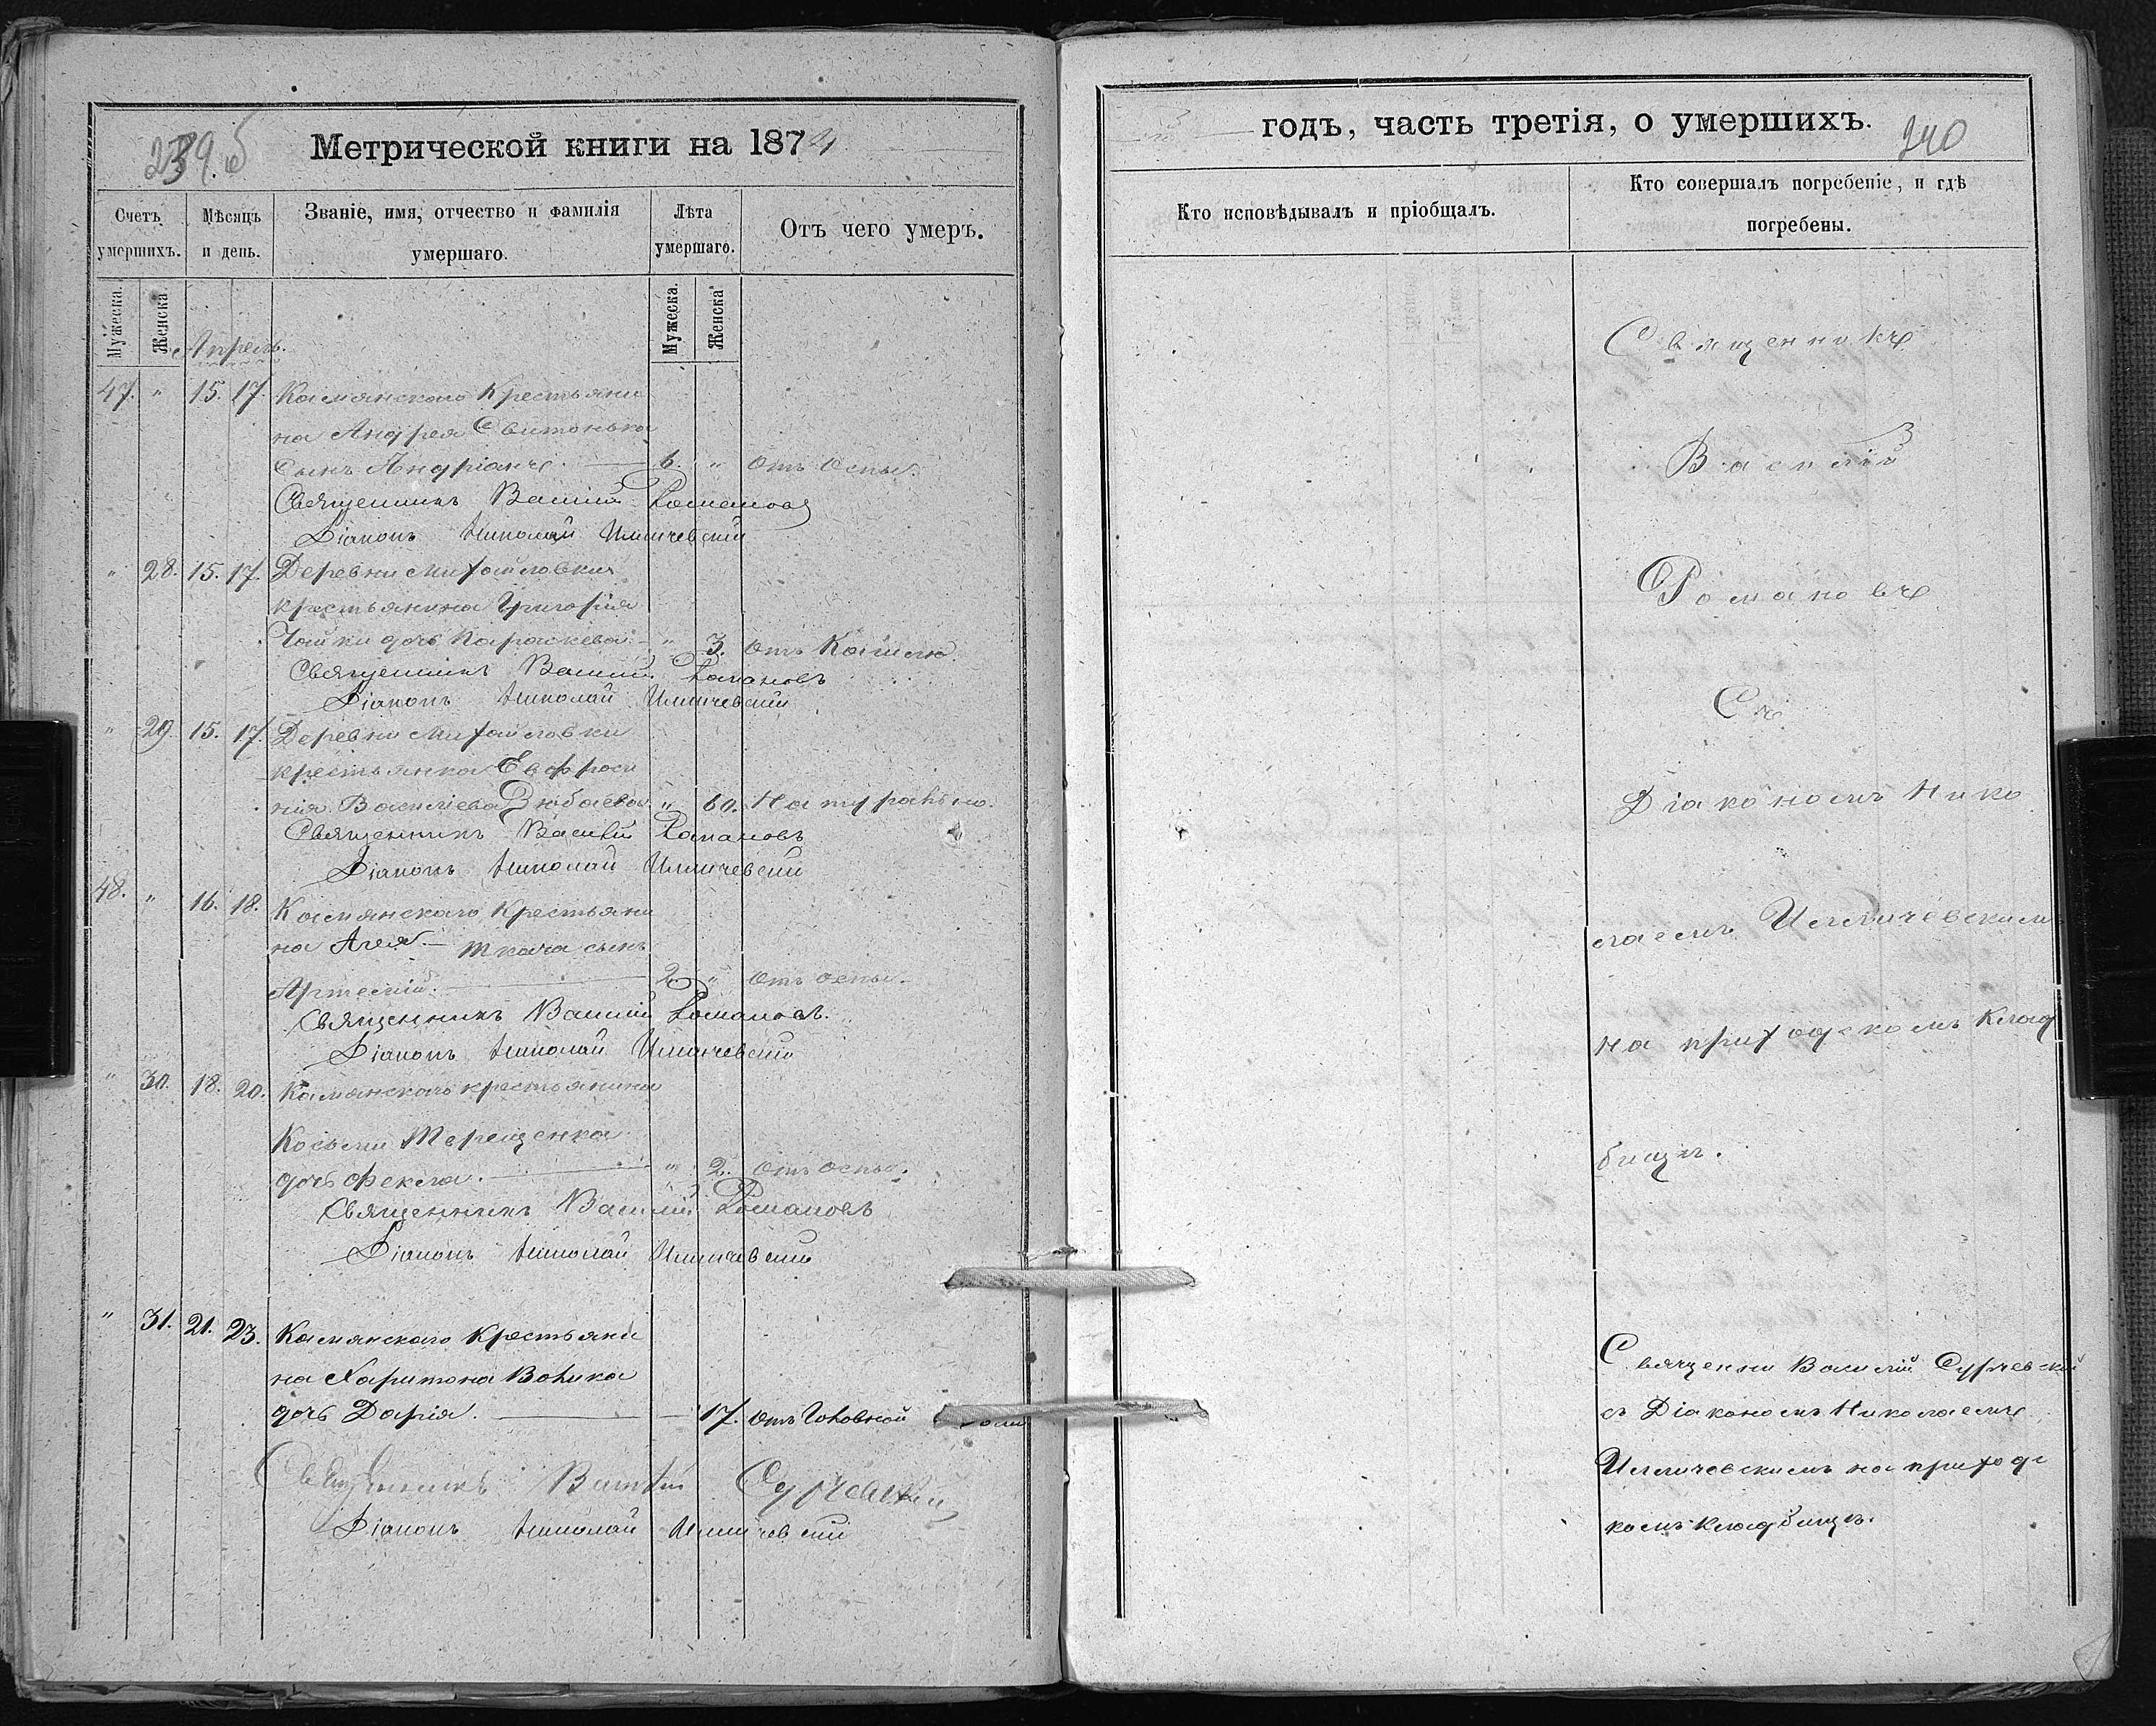 239об
Метрической книги на 1874
Счетъ умершихъ.
Мѣсяцъ и день.
Званіе, имя, отчество и фамилія умершаго.
Лѣта умершаго.
Отъ чего умеръ.
Мужеска.
Женска.
Мужеска.
Женска
Апрель.
47. " 15. 17. Камянскаго Крестьяни
на Андрея
Сынъ Андріанъ. 6. " Отъ оспы.
Священникъ Василій Романовъ
Діаконъ Николай Илличевскій
" 28. 15. 17. Деревни Михайловки
крестьянина Григорія
Чайки дочь Параскева " 3. отъ Кашлю.
Священникъ Василій Романовъ
Діаконъ Николай Илличевскій
" 29. 15. 17. Деревни Михайловки
крестьянка Евфроси
нія Василіева Зюбаева " 60. Натурально.
Священникъ Василій Романовъ
Діаконъ Николай Илличевскій
48. " 16. 18. Камянскаго Крестьяни
на Ткача сынъ
Артемій. 2. " Отъ оспы.
Священникъ Василій Романовъ.
Діаконъ Николай Илличевскій
" 30. 18. 20. Камянскаго крестьянина
Косьмы Терещенка
дочь Фекла. " 2. Отъ оспы.
Священникъ Василій Романовъ
Діаконъ Николай Илличевскій
" 31. 21. 23. Камянскаго Крестьяни
на Харитона Вовика
дочь Дарія. 17. отъ Головной боли
Священникъ Василій Сурчевскій
Діаконъ Николай Илличевскій
годъ, часть третія, о умершихъ.
240
Кто исповѣдывалъ и пріобщалъ.
Кто совершалъ погребеніе, и гдѣ
погребены.
Священникъ
Василій
Романовъ
Съ
Діакономъ Нико
лаемъ Илличевскимъ
на приходскомъ Клад
бищѣ.
Священни Василій Сурчевскій
съ Діакономъ Николаемъ
Илличевскимъ на приходс
комъ Кладбищѣ.